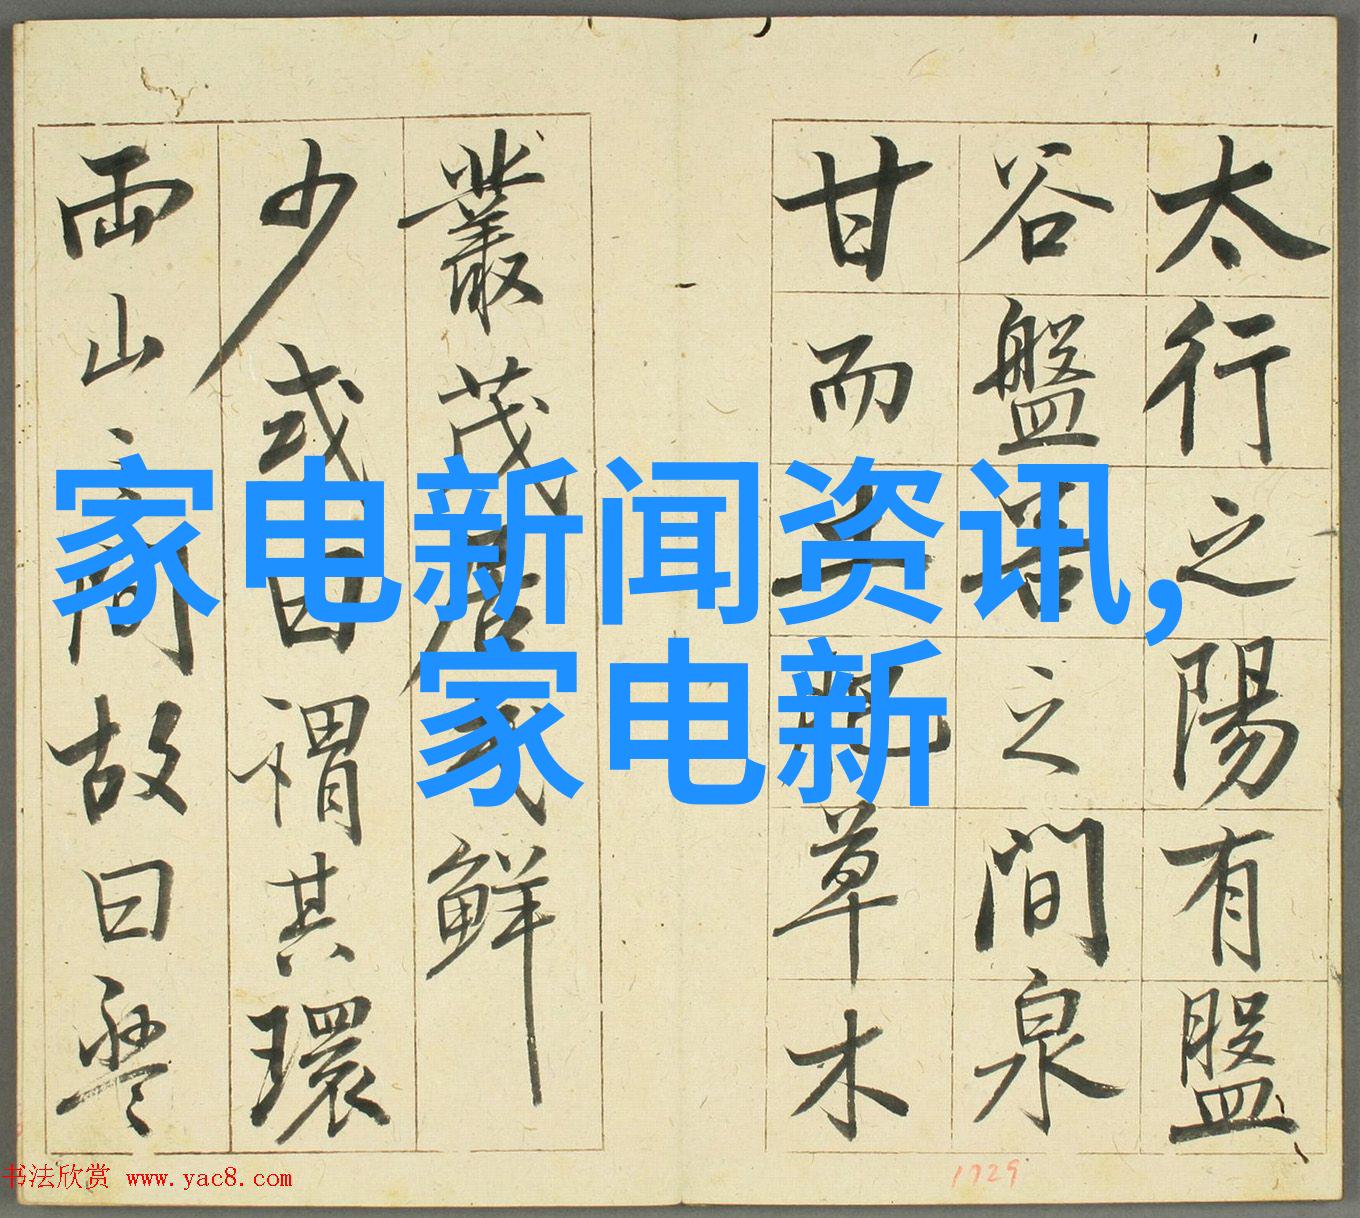 太行之陽有盤
谷盤谷之間泉
甘而土肥草木
叢茂居民鮮
少或曰謂其環
兩山之間故曰盤
家电新闻资讯,
家电新
书法欣赏 www.yac8.com
1729